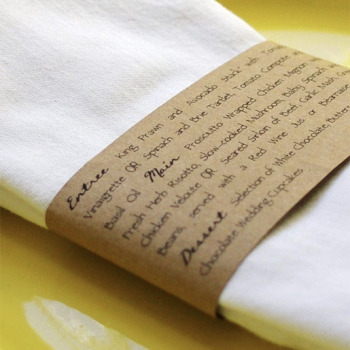 Entree King Prawn and Avocado "stack" with Tom
Vinaigrette OR Spinach and Brie Tartlet, Tomato Compote an
Basil Oil Main Prosciutto Wrapped Chicken Mignon
Fresh Herb Risotto, Slow-cooked Mushroom, Baby Spinach
Chicken Veloute OR Seared Sirloin of Beef, Garlic Mash, Gr
Beans, served with a Red Wine Jus or Bearnaise
Dessert Selection of White Chocolate Butter
Chocolate Wedding Cupcakes